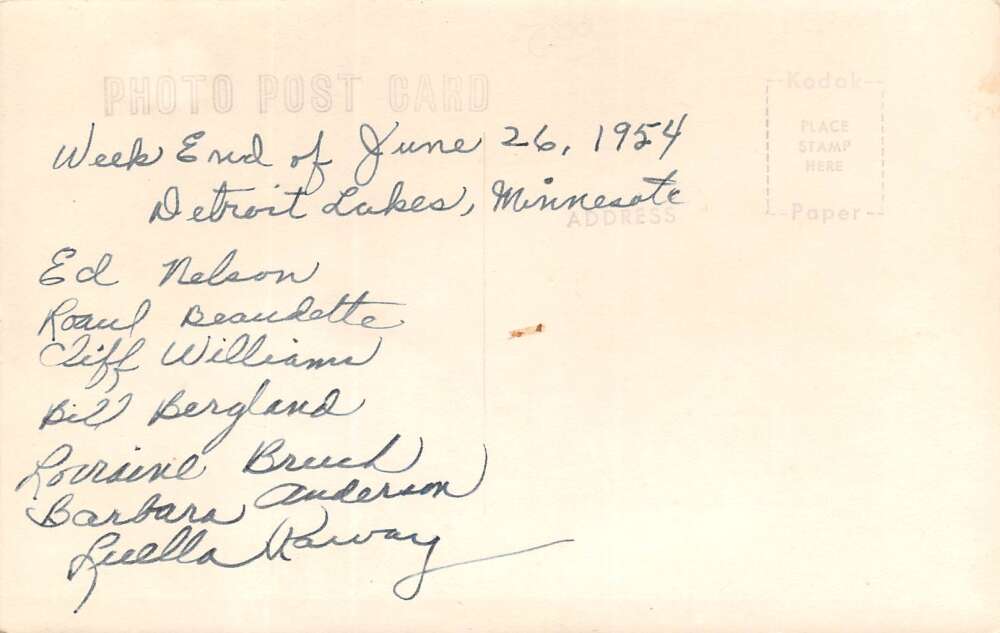 PHOTO POST CARD
Kodak
PLACE
STAMP
HERE
Paper
ADDRESS
Week End of June 26, 1954
Detroit Lakes, Minnesota
Ed Nelson
Roaul Beaudette
Cliff Williams
Bill Bergland
Lorraine Bruch
Barbara Anderson
Luella